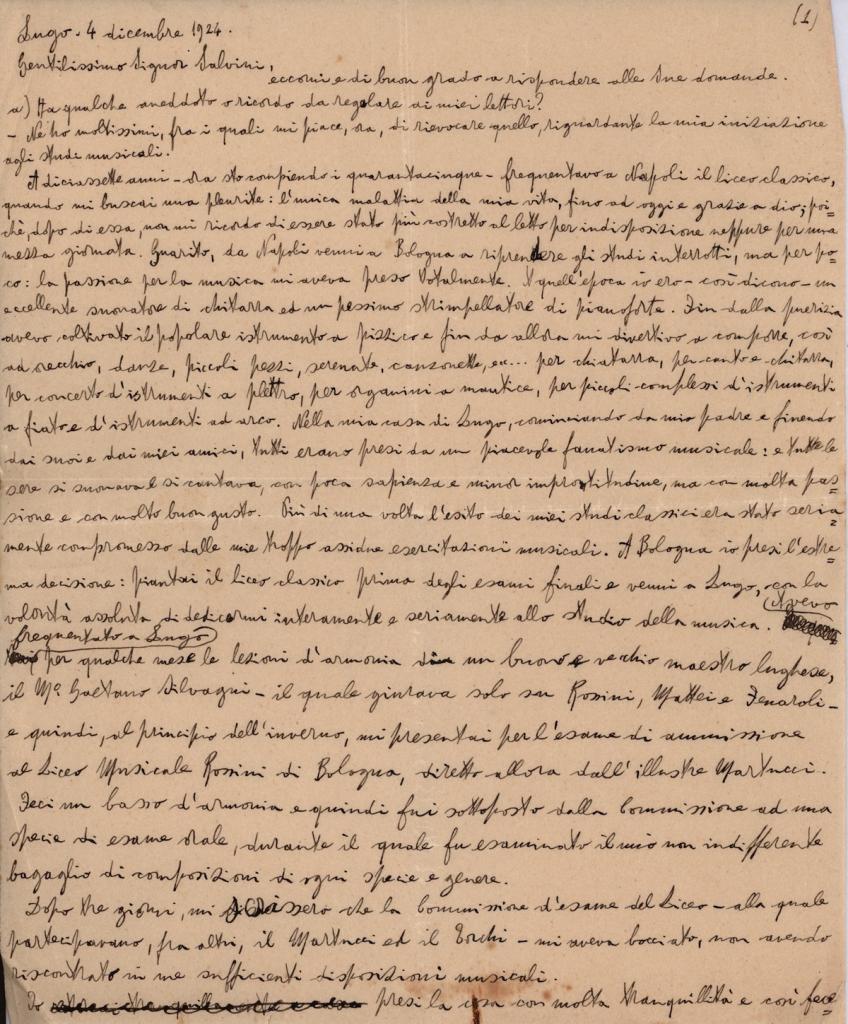 (1)
Lugo - 4 dicembre 1924.
Gentilissimo Signor Salvini,
eccomi e di buon grado a rispondere alle Sue domande.
a) Ha qualche aneddoto o ricordo da regalare ai miei lettori?
- Ne ho moltissimi, fra i quali mi piace, ora, di rievocare quello, riguardante la mia iniziazione
agli studi musicali.
A diciassette anni - ora sto compiendo i quarantacinque - frequentavo a Napoli il liceo classico,
quando mi buscai una pleurite: l'unica malattia della mia vita, fino ad oggi e grazie a dio; poi=
chè, dopo di essa, non mi ricordo di essere stato più costretto al letto per indisposizione neppure per una
mezza giornata. Guarito, da Napoli venni a Bologna a riprendere gli studi interrotti, ma per po=
co: la passione per la musica mi aveva preso totalmente. A quell'epoca io ero - così dicono - un
eccellente suonatore di chitarra ed un pessimo strimpellatore di pianoforte. Fin dalla puerizia
avevo coltivato il popolare istrumento a pizzico e fin da allora mi divertivo a comporre, così
ad orecchio, danze, piccoli pezzi, serenate, canzonette, ec... per chitarra, per canto e chitarra,
per concerto d'istrumenti a plettro, per organini a mantice, per piccoli complessi d'istrumenti
a fiato e d'istrumenti ad arco. Nella mia casa di Lugo, cominciando da mio padre e finendo
dai suoi e dai miei amici, tutti erano presi da un piacevole fanatismo musicale: e tutte le
sere si suonava e si cantava, con poca sapienza e minor improntitudine, ma con molta pas=
sione e con molto buon gusto. Più di una volta l'esito dei miei studi classici era stato seria=
mente compromesso dalle mie troppo assidue esercitazioni musicali. A Bologna io presi l'estre=
ma decisione: piantai il liceo classico prima degli esami finali e venni a Lugo, con la
volontà assoluta di dedicarmi interamente e seriamente allo studio della musica. Avevo
frequentato a Lugo
per qualche mese le lezioni d'armonia di un buono e vecchio maestro lughese,
il Mº Gaetano Silvagni - il quale giurava solo su Rossini, Mattei e Fenaroli -
e quindi, al principio dell'inverno, mi presentai per l'esame di ammissione
al Liceo Musicale Rossini di Bologna, diretto allora dall'illustre Martucci.
Feci un basso d'armonia e quindi fui sottoposto dalla Commissione ad una
specie di esame orale, durante il quale fu esaminato il mio non indifferente
bagaglio di composizioni di ogni specie e genere.
Dopo tre giorni, mi dissero che la Commissione d'esame del Liceo - alla quale
partecipavano, fra altri, il Martucci ed il Torchi - mi aveva bocciato, non avendo
riscontrato in me sufficienti disposizioni musicali.
Io presi la cosa con molta tranquillità e così fece=